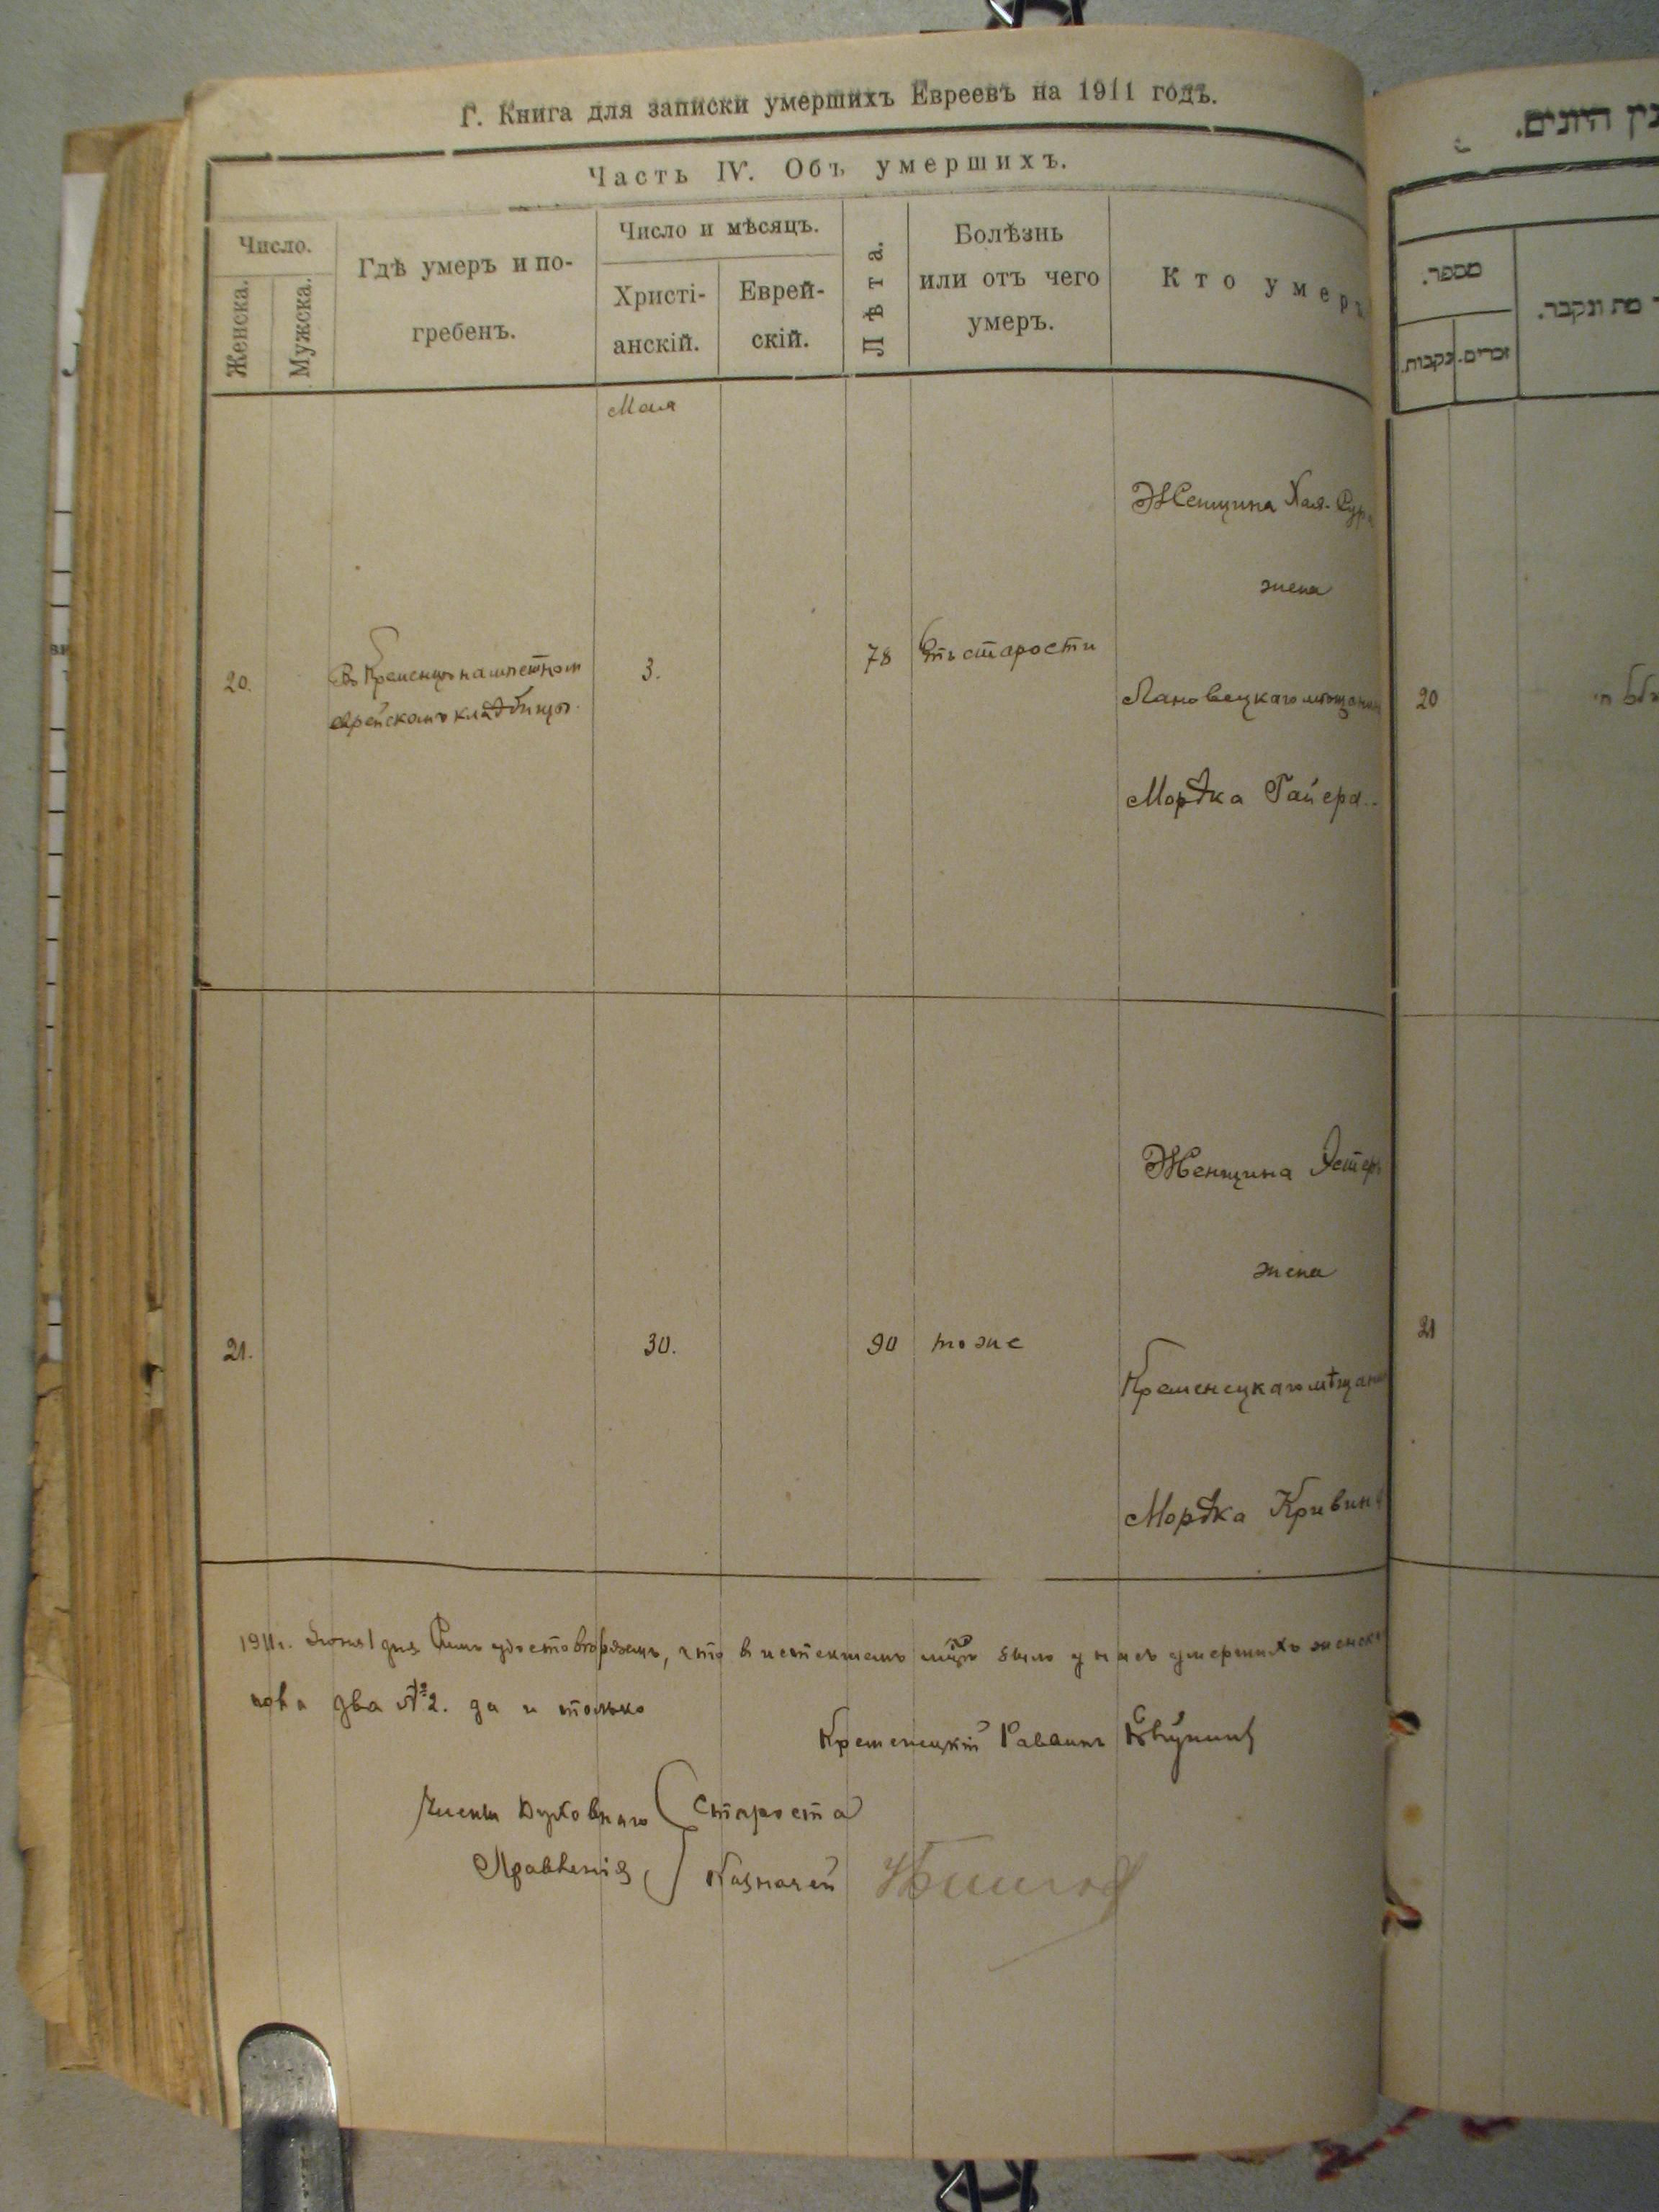 Г. Книга для записки умершихъ Евреевъ на 1911 годъ.
Часть IV. Объ умершихъ.
Число.
Женска.
Мужска.
Гдѣ умеръ и по-
гребенъ.
Число и мѣсяцъ.
Христі-
анскій.
Еврей-
скій.
Лѣта.
Болѣзнь
или отъ чего
умеръ.
Кто умеръ
Мая
20.
Въ Кременцѣ на мѣстномъ
еврейскомъ кладбищѣ.
3.
78
Отъ старости
Женщина Хая-Сура
жена
Лановецкаго мѣщанин
Мордка Гайера.
21.
30.
90
тоже
Женщина Эстеръ
жена
Кременецкаго мѣщанин
Мордка Кривин
1911г. Іюня 1 дня Симъ удостовѣряемъ, что въ истекшемъ мѣсяцѣ было у насъ умершихъ женск
пола два № 2. да и только
Кременецкій Раввинъ
Члены Духовнаго
Правленія
Староста
Казначей
מספר.
זכרים.
נקבות.
מת ונקבר.
20
21